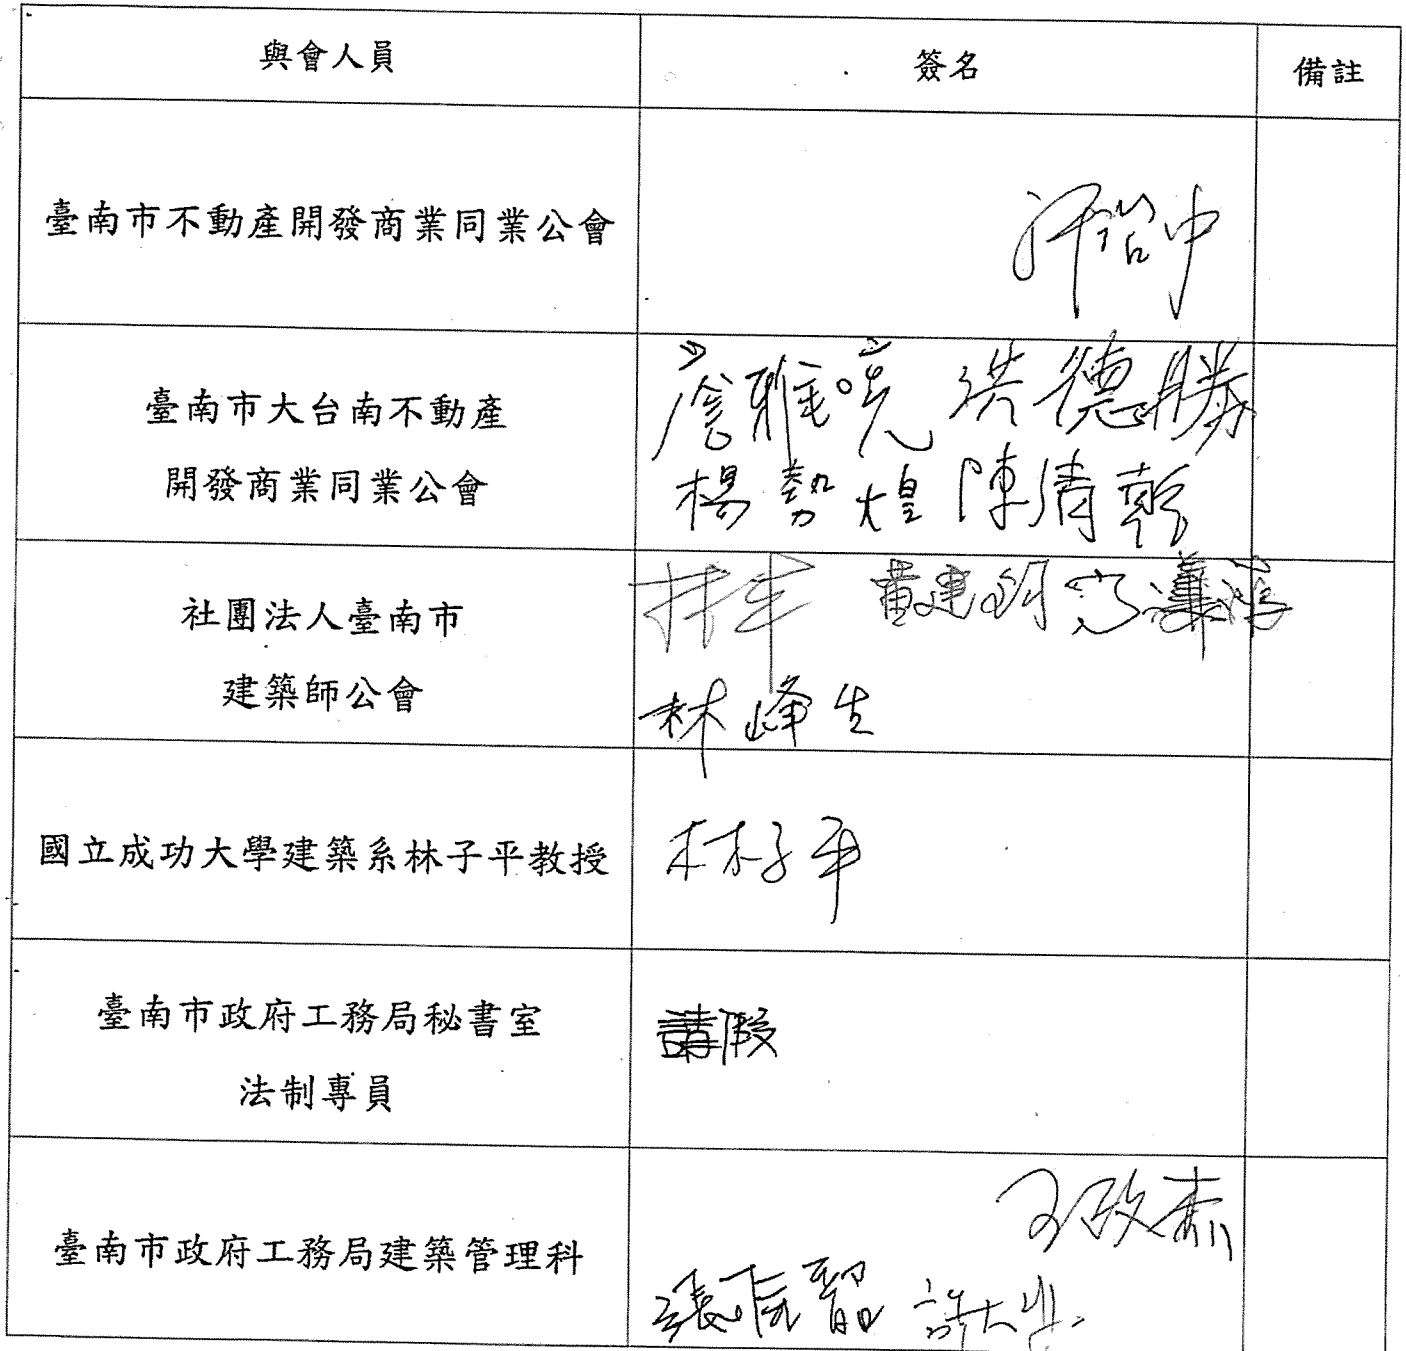 與會人員 簽名 備註
臺南市不動產開發商業同業公會
臺南市大台南不動產
開發商業同業公會
洪德勝
楊勢煌 陳清乾
社團法人臺南市
建築師公會
黃建鈞
林峰生
國立成功大學建築系林子平教授
林子平
臺南市政府工務局秘書室
法制專員
請假
臺南市政府工務局建築管理科